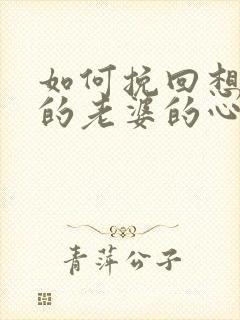 如何挽回想
的老婆的心
青萍公子